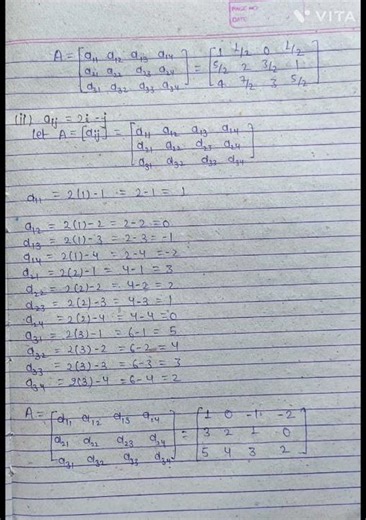 PAGE NO:
DATE:
VITA
A = [a₁₁ a₁₂ a₁₃ a₁₄ = [1 1/2 0 1/2
a₂₁ a₂₂ a₂₃ a₂₄ 5/2 2 3/2 1
a₃₁ a₃₂ a₃₃ a₃₄] 4 7/2 3 5/2]
(ii) aij = 2i - j
let A = [aij] = [a₁₁ a₁₂ a₁₃ a₁₄
a₂₁ a₂₂ a₂₃ a₂₄
a₃₁ a₃₂ a₃₃ a₃₄]
a₁₁ = 2(1)-1 = 2-1 = 1
a₁₂ = 2(1)-2 = 2-2 = 0
a₁₃ = 2(1)-3 = 2-3 = -1
a₁₄ = 2(1)-4 = 2-4 = -2
a₂₁ = 2(2)-1 = 4-1 = 3
a₂₂ = 2(2)-2 = 4-2 = 2
a₂₃ = 2(2)-3 = 4-3 = 1
a₂₄ = 2(2)-4 = 4-4 = 0
a₃₁ = 2(3)-1 = 6-1 = 5
a₃₂ = 2(3)-2 = 6-2 = 4
a₃₃ = 2(3)-3 = 6-3 = 3
a₃₄ = 2(3)-4 = 6-4 = 2
A = [a₁₁ a₁₂ a₁₃ a₁₄ = [1 0 -1 -2
a₂₁ a₂₂ a₂₃ a₂₄ 3 2 1 0
a₃₁ a₃₂ a₃₃ a₃₄] 5 4 3 2]